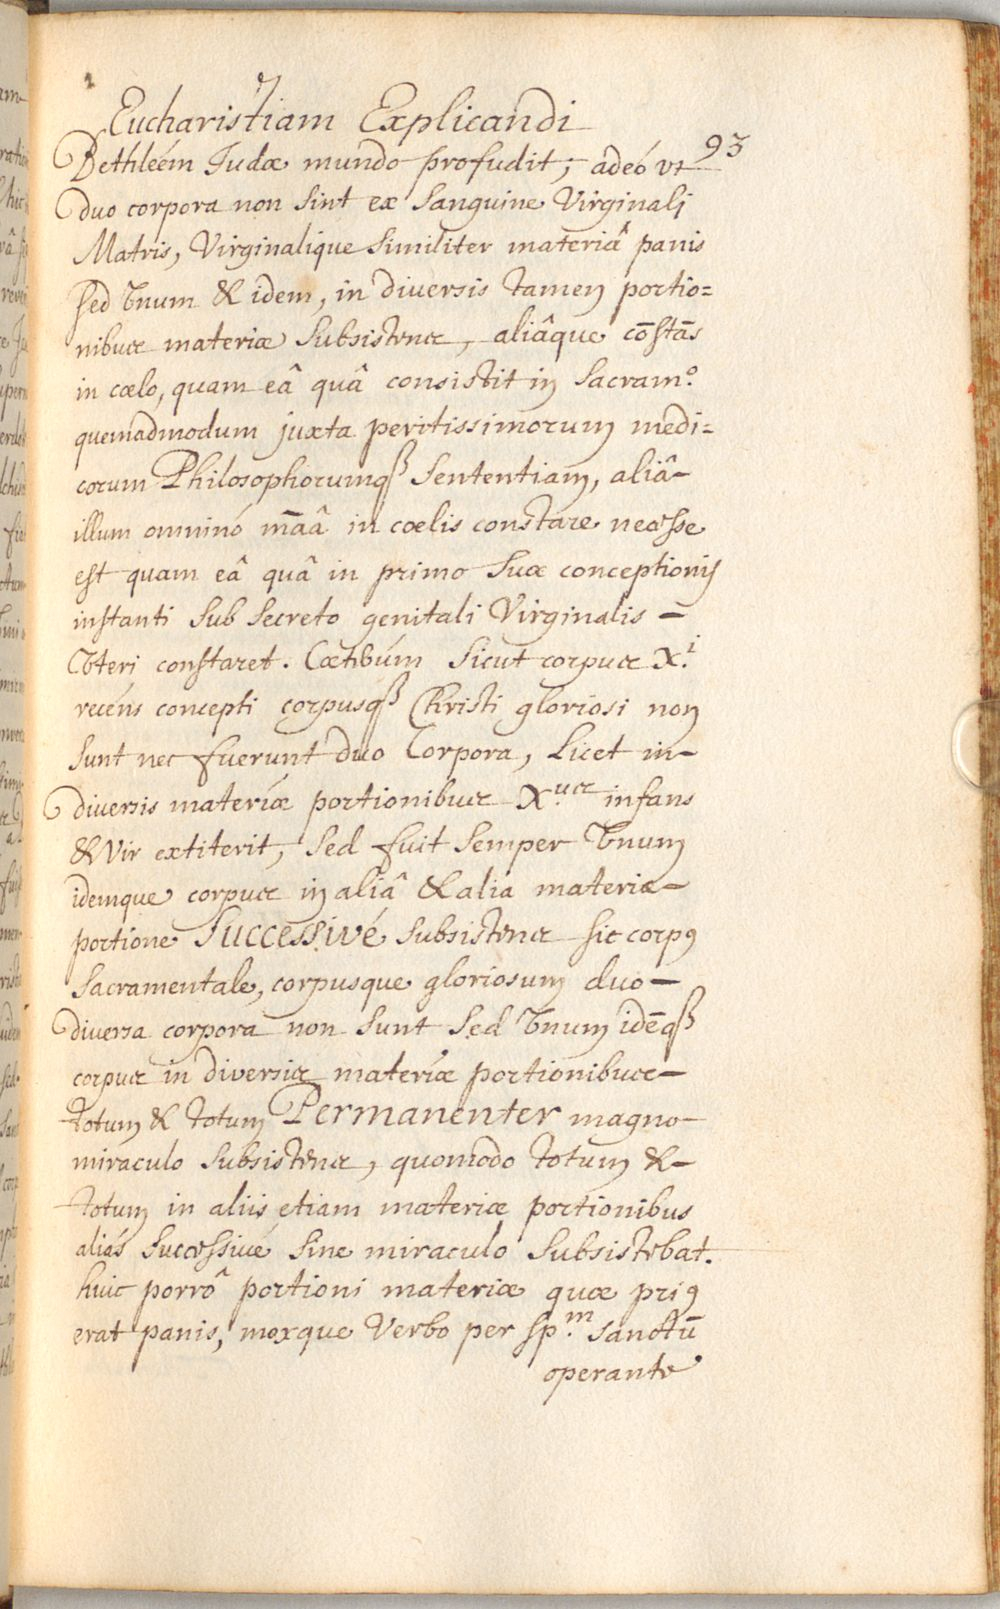 Eucharistiam Explicandi
93
Bethleém Iudæ mundo profudit; adeó vt
duo corpora non sint ex Sanguine Virginali
Matris, Virginalique similiter materiâ panis
sed Vnum & idem, in diversis tamen portio=
nibus materiæ subsistens, aliâque cōstās
in cœlo, quam eâ quâ consistit in Sacram.º
quemadmodum juxta peritissimorum medi=
corum Philosophorumqꝫ sententiam, aliâ-
illum omninó māâ in cœlis constare necesse
est quam eâ quâ in primo suæ conceptionis
instanti sub secreto genitali Virginalis -
Vteri constaret. Cæterúm sicut corpus X.i
recéns concepti corpusqꝫ Christi gloriosi non
sunt nec fuerunt duo Corpora, Licet in-
diversis materiæ portionibus X.us infans
& Vir extiterit, sed fuit semper Vnum
idemque corpus in aliâ & alia materiæ-
portione Successivé subsistens sic corpꝰ
Sacramentale, corpusque gloriosum duo-
diversa corpora non sunt sed Vnum idēqꝫ
corpus in diversis materiæ portionibus-
totum & totum Permanenter magno-
miraculo subsistens, quomodo totum &-
totum in aliis etiam materiæ portionibus
aliás successivé sine miraculo subsistebat.
huic porrô portioni materiæ quæ priꝰ
erat panis, moxque Verbo per sp.m sanctū
operante